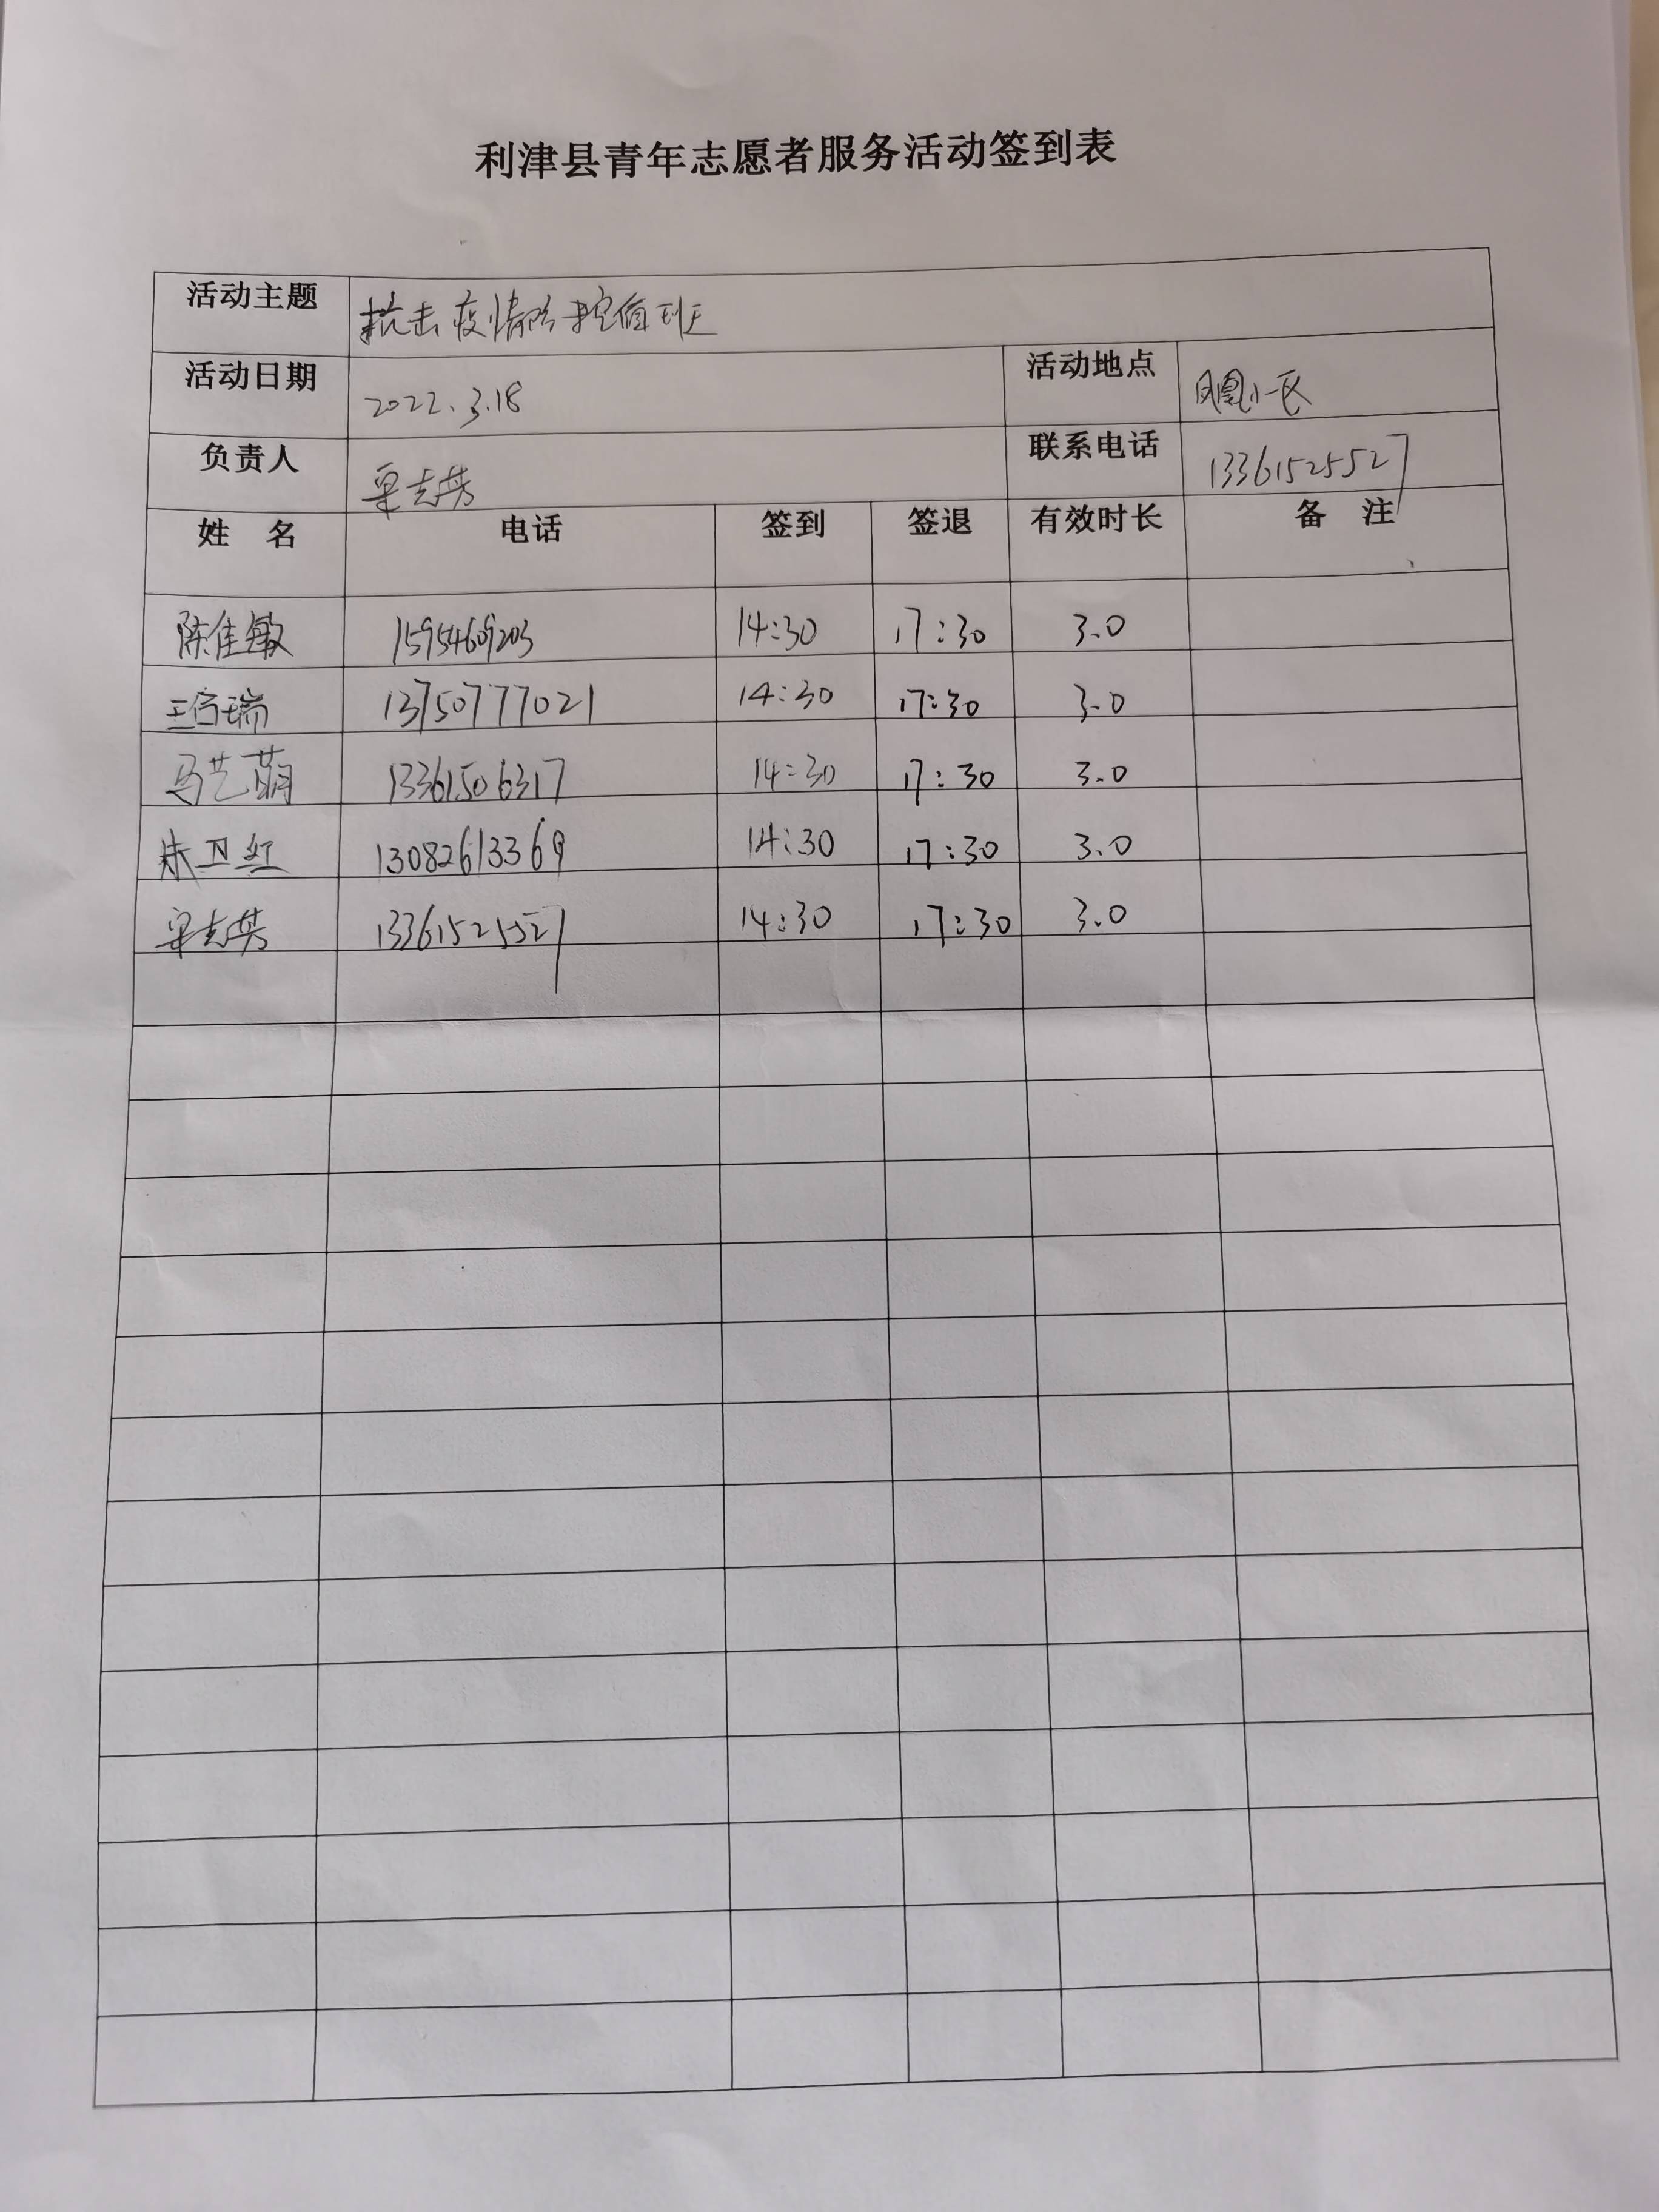 利津县青年志愿者服务活动签到表
活动主题 抗击疫情防控值班
活动日期 2022.3.18 活动地点 凤凰小区
负责人 志芳 联系电话 13361525527
姓 名 电话 签到 签退 有效时长 备 注
陈佳敏 15954609203 14:30 17:30 3.0
王信瑞 13750777021 14:30 17:30 3.0
马艺萌 13361506317 14:30 17:30 3.0
卫红 13082613369 14:30 17:30 3.0
志芳 13361525527 14:30 17:30 3.0